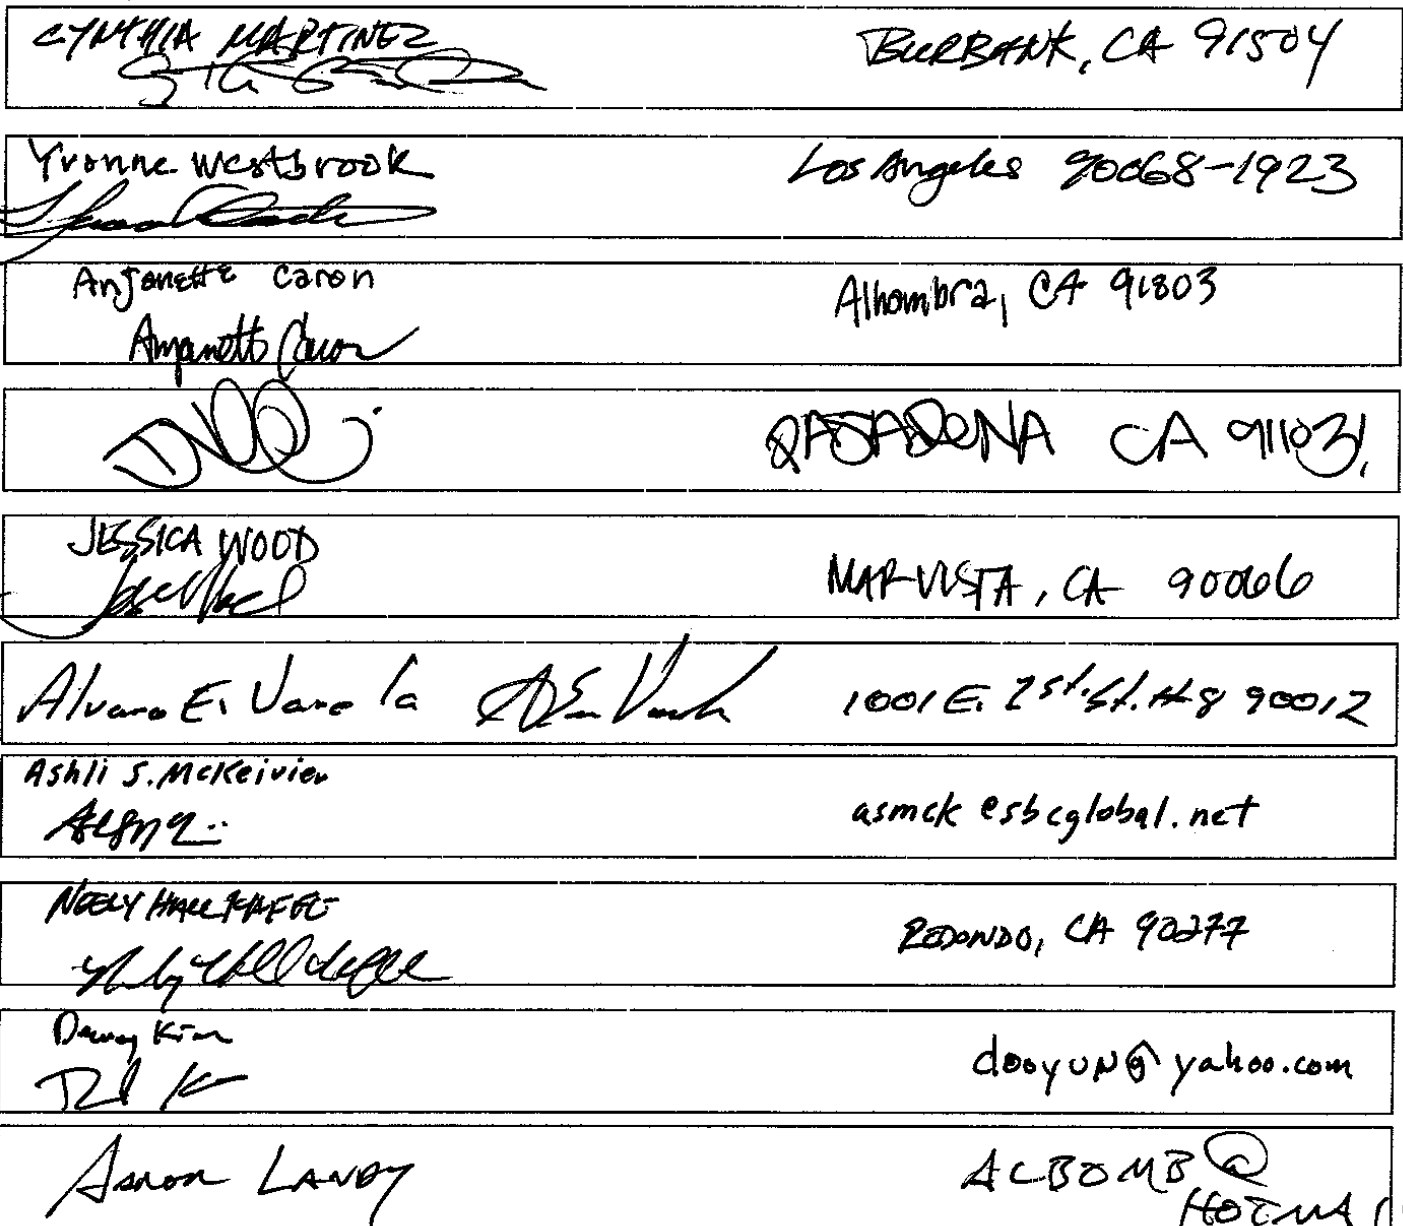 CYNTHIA MARTINEZ
BURBANK, CA 91504
Yvonne Westbrook
Los Angeles 90068-1923
Anjonette Caron
Alhambra, CA 91803
Anjonette Caron
PASADENA CA 91103
JESSICA WOOD
MAR VISTA, CA 90066
Alvaro E. Varela
1001 E. 1st. St. #8 90012
Ashli S. McKeivier
asmck@sbcglobal.net
NEELY HALL
REDONDO, CA 90277
Kim
dooyun@yahoo.com
AARON LANDY
ACBOMB@
HOTMA